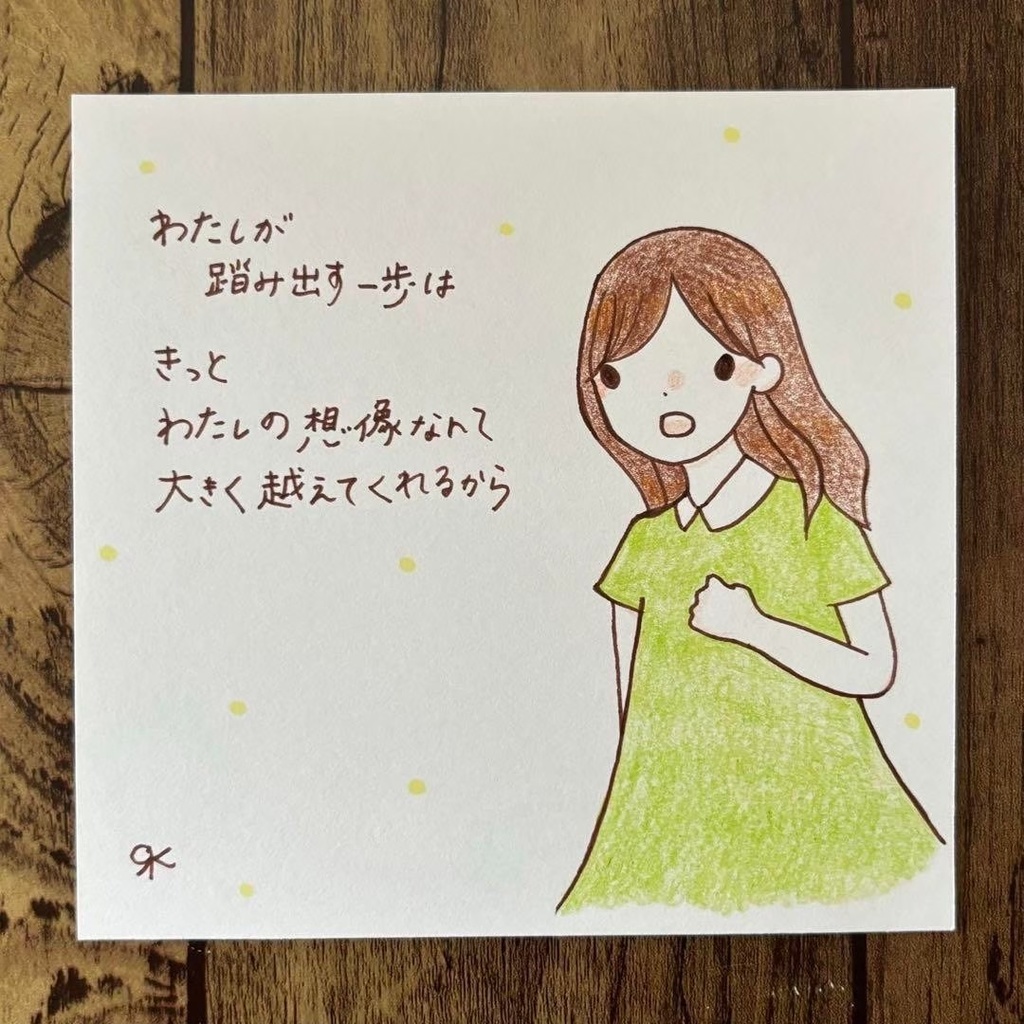 わたしが
踏み出す一歩は
きっと
わたしの想像なんて
大きく越えてくれるから